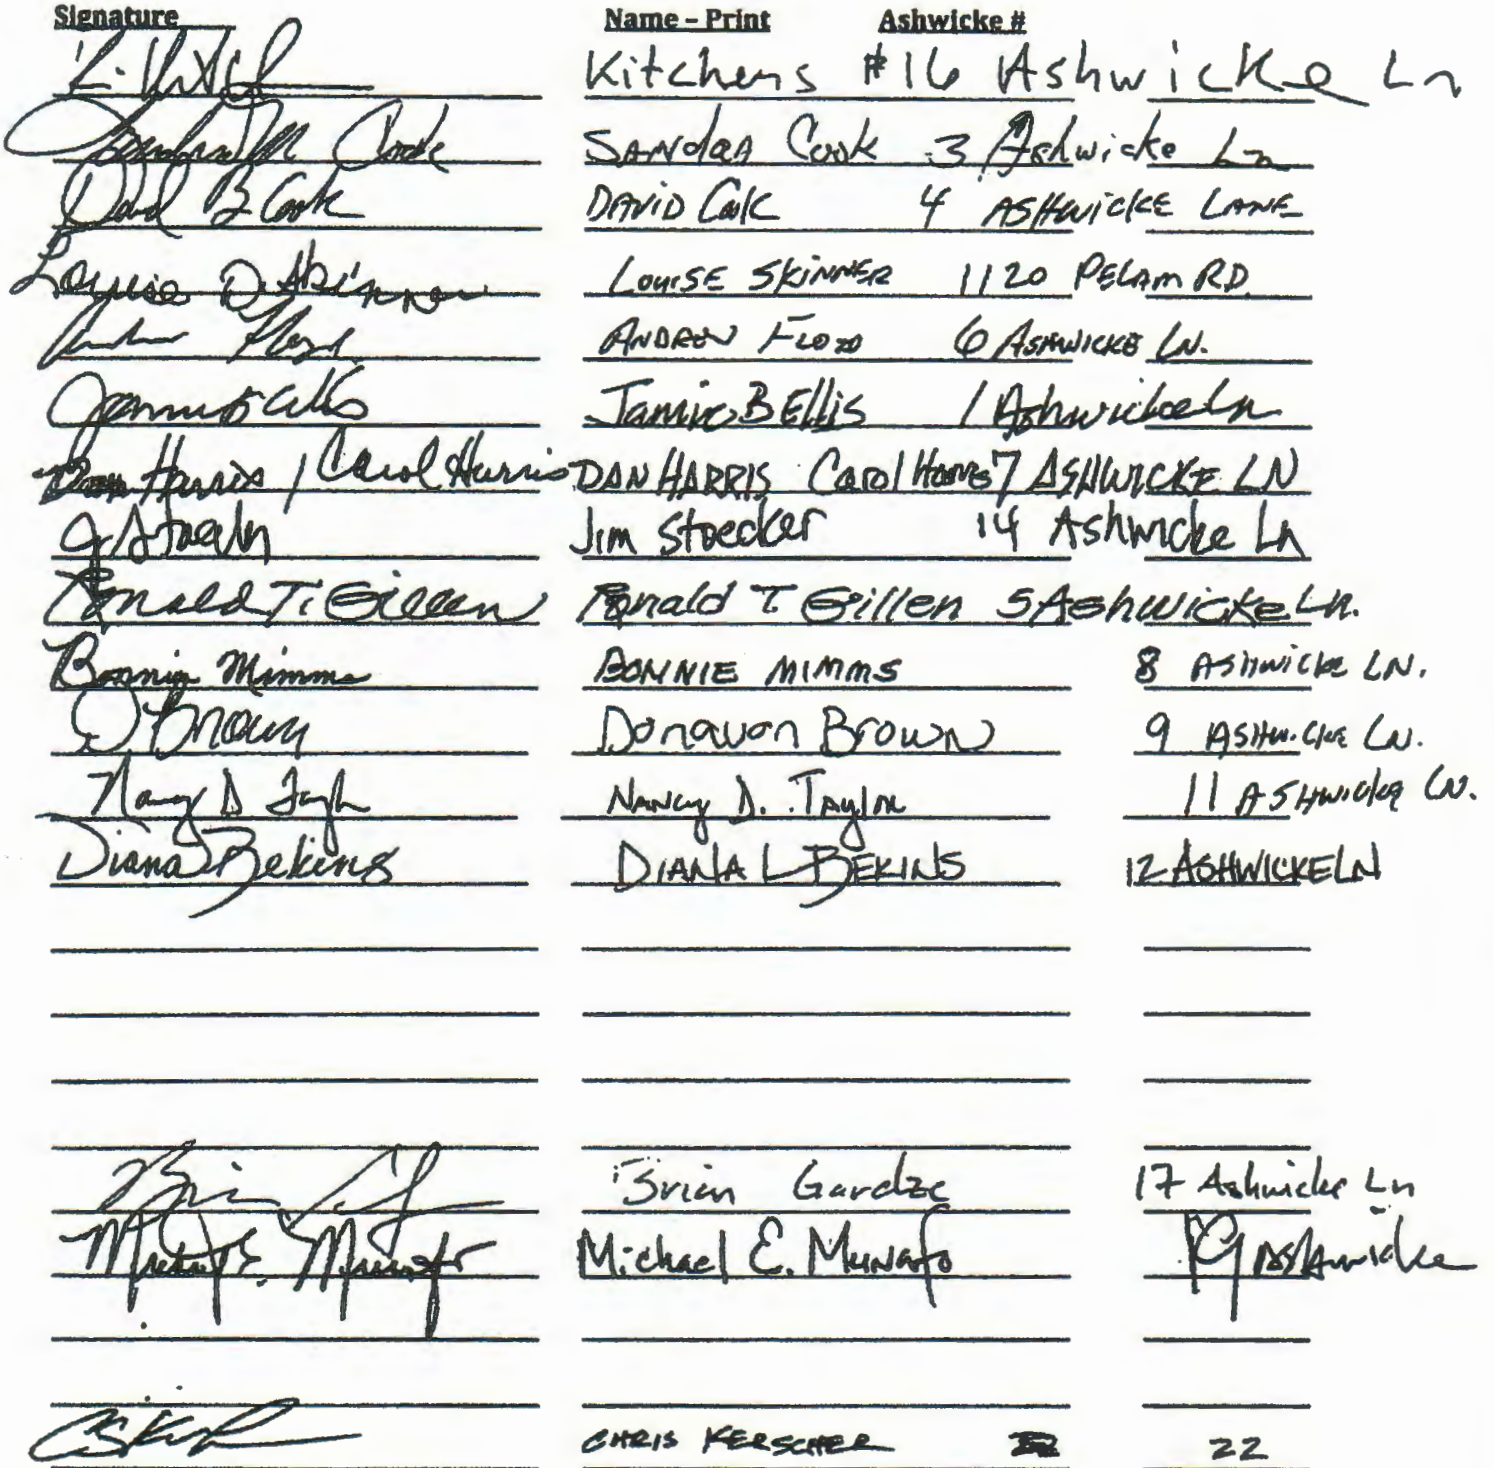 Signature Name – Print Ashwicke #
Kitchens #16 Ashwicke Ln
Sandra M Cook SANdRA Cook 3 Ashwicke Ln
David B Cook DAVID Cook 4 ASHWICKE LANE
Louise D. Skinner LOUISE SKINNER 1120 PELAM RD.
Andrew Floyd ANDREW FLOYD 6 ASHWICKE LN.
Jamie Bellis Jamie BEllis 1 Ashwicke Ln
Dan Harris / Carol Harris DAN HARRIS Carol Harris 7 ASHWICKE LN
Jim Stoecker 14 Ashwicke Ln
Ronald T. Gillen Ronald T Gillen 5 Ashwicke Ln.
Bonnie Mimms BONNIE MIMMS 8 ASHWICKE LN.
D Brown Donavon Brown 9 ASHWICKE LN.
Nancy D Taylor NANCY D. TAYLOR 11 ASHWICKE LN.
Diana Bekins DIANA L BEKINS 12 ASHWICKE LN
Brian Gardze 17 Ashwicke Ln
Michael E. Munafo Michael E. Munafo 19 Ashwicke
CHRIS KERSCHER 22